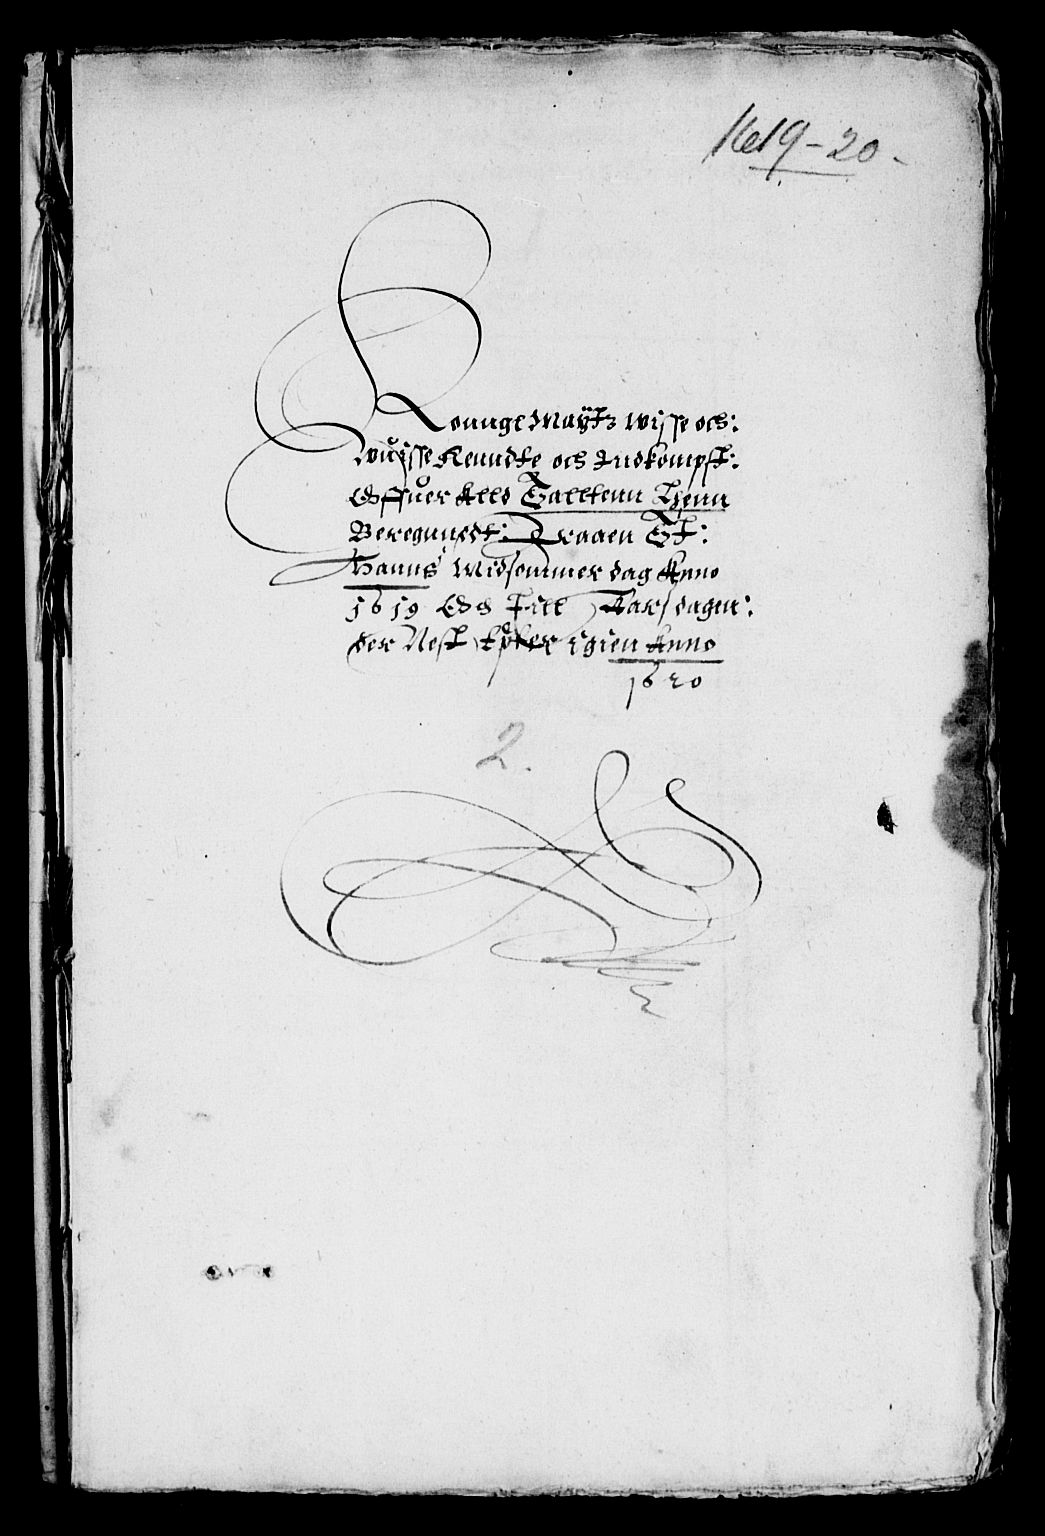 1619-20.
Konnge Maÿtz wisse och:
wuisse Renndte och Indkompst:
Offuer Alld Salltenn Thenn
Beregnnedt: Fraaen St:
Hanns Midsommer dag Anno
1619 Och Till Aarsdagen:
der Nest Epter igien Anno
1620
2.